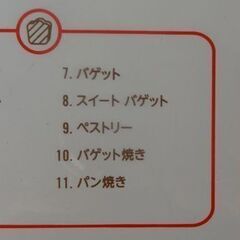 7. バゲット
8. スイート バゲット
9. ペストリー
10. バゲット焼き
11. パン焼き